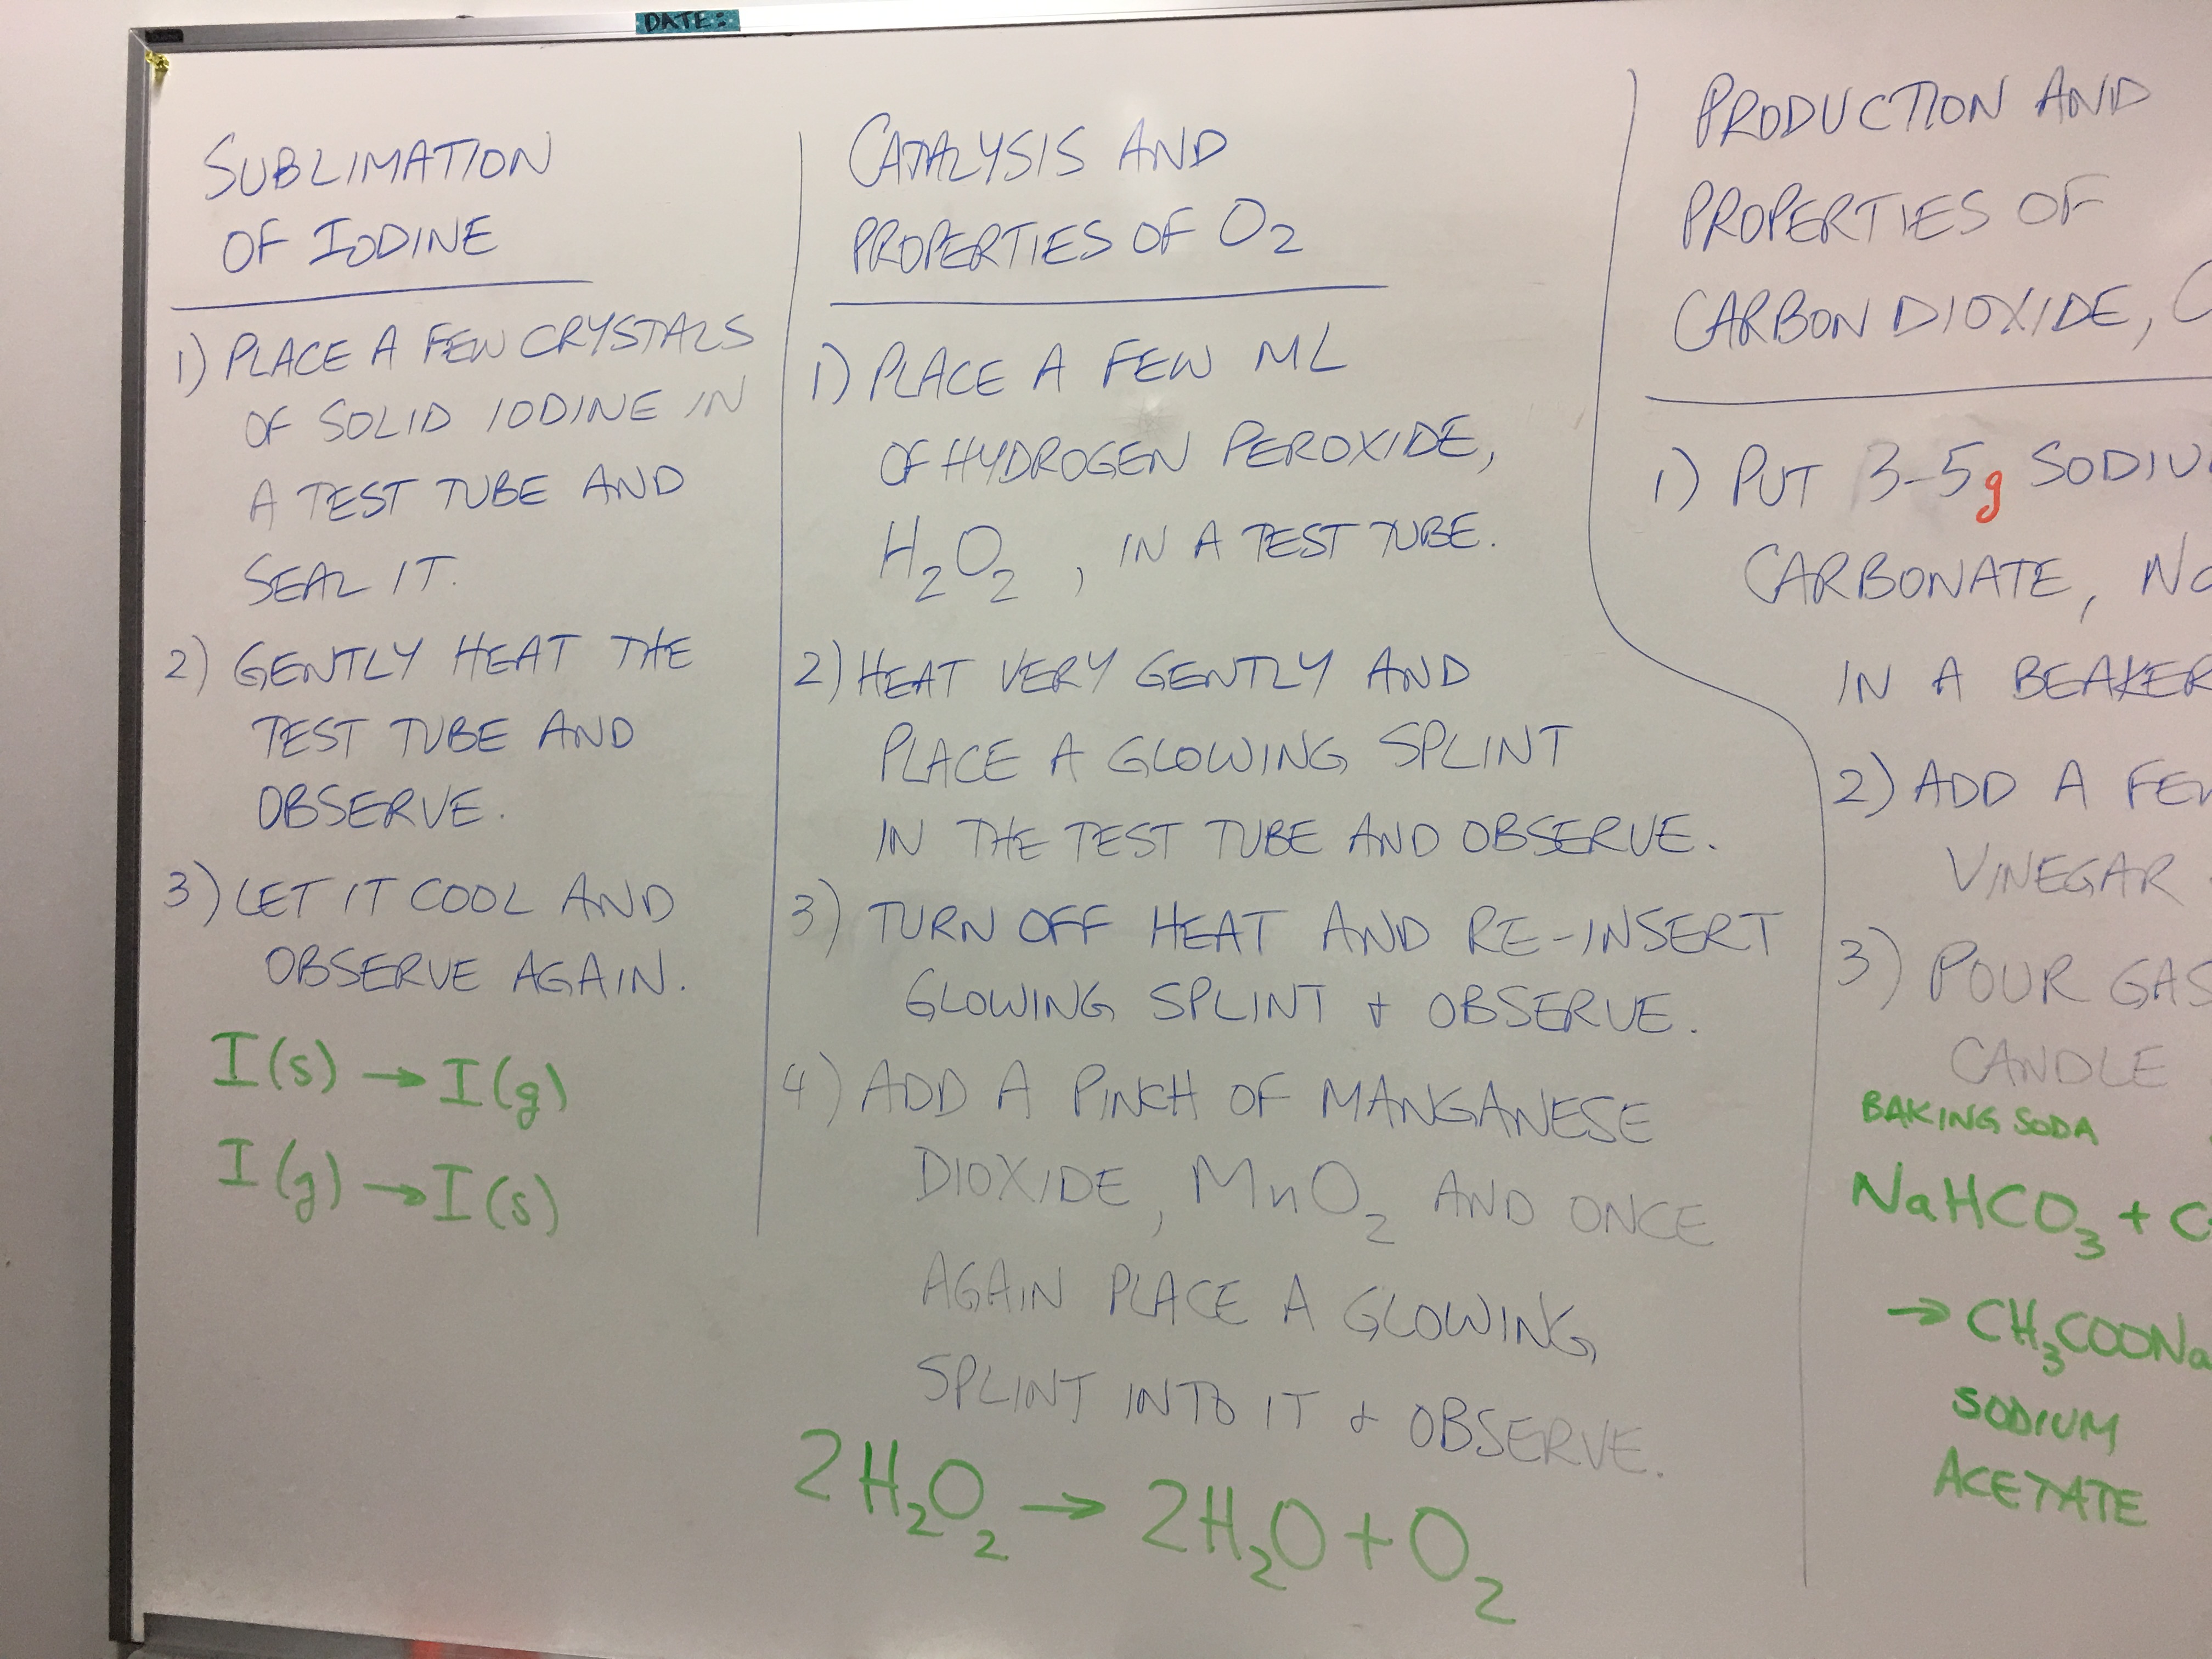 DATE:
SUBLIMATION
OF IODINE
1) PLACE A FEW CRYSTALS
OF SOLID IODINE IN
A TEST TUBE AND
SEAL IT.
2) GENTLY HEAT THE
TEST TUBE AND
OBSERVE.
3) LET IT COOL AND
OBSERVE AGAIN.
I(s) → I(g)
I(g) → I(s)
CATALYSIS AND
PROPERTIES OF O₂
1) PLACE A FEW ML
OF HYDROGEN PEROXIDE,
H₂O₂, IN A TEST TUBE.
2) HEAT VERY GENTLY AND
PLACE A GLOWING SPLINT
IN THE TEST TUBE AND OBSERVE.
3) TURN OFF HEAT AND RE-INSERT
GLOWING SPLINT + OBSERVE.
4) ADD A PINCH OF MANGANESE
DIOXIDE, MnO₂ AND ONCE
AGAIN PLACE A GLOWING
SPLINT INTO IT + OBSERVE.
2H₂O₂ → 2H₂O + O₂
PRODUCTION AND
PROPERTIES OF
CARBON DIOXIDE,
1) PUT 3-5g SODIU
CARBONATE,
IN A BEAKER
2) ADD A FEW
VINEGAR
3) POUR GAS
CANDLE
BAKING SODA
NaHCO₃ + C
→ CH₃COONa
SODIUM
ACETATE